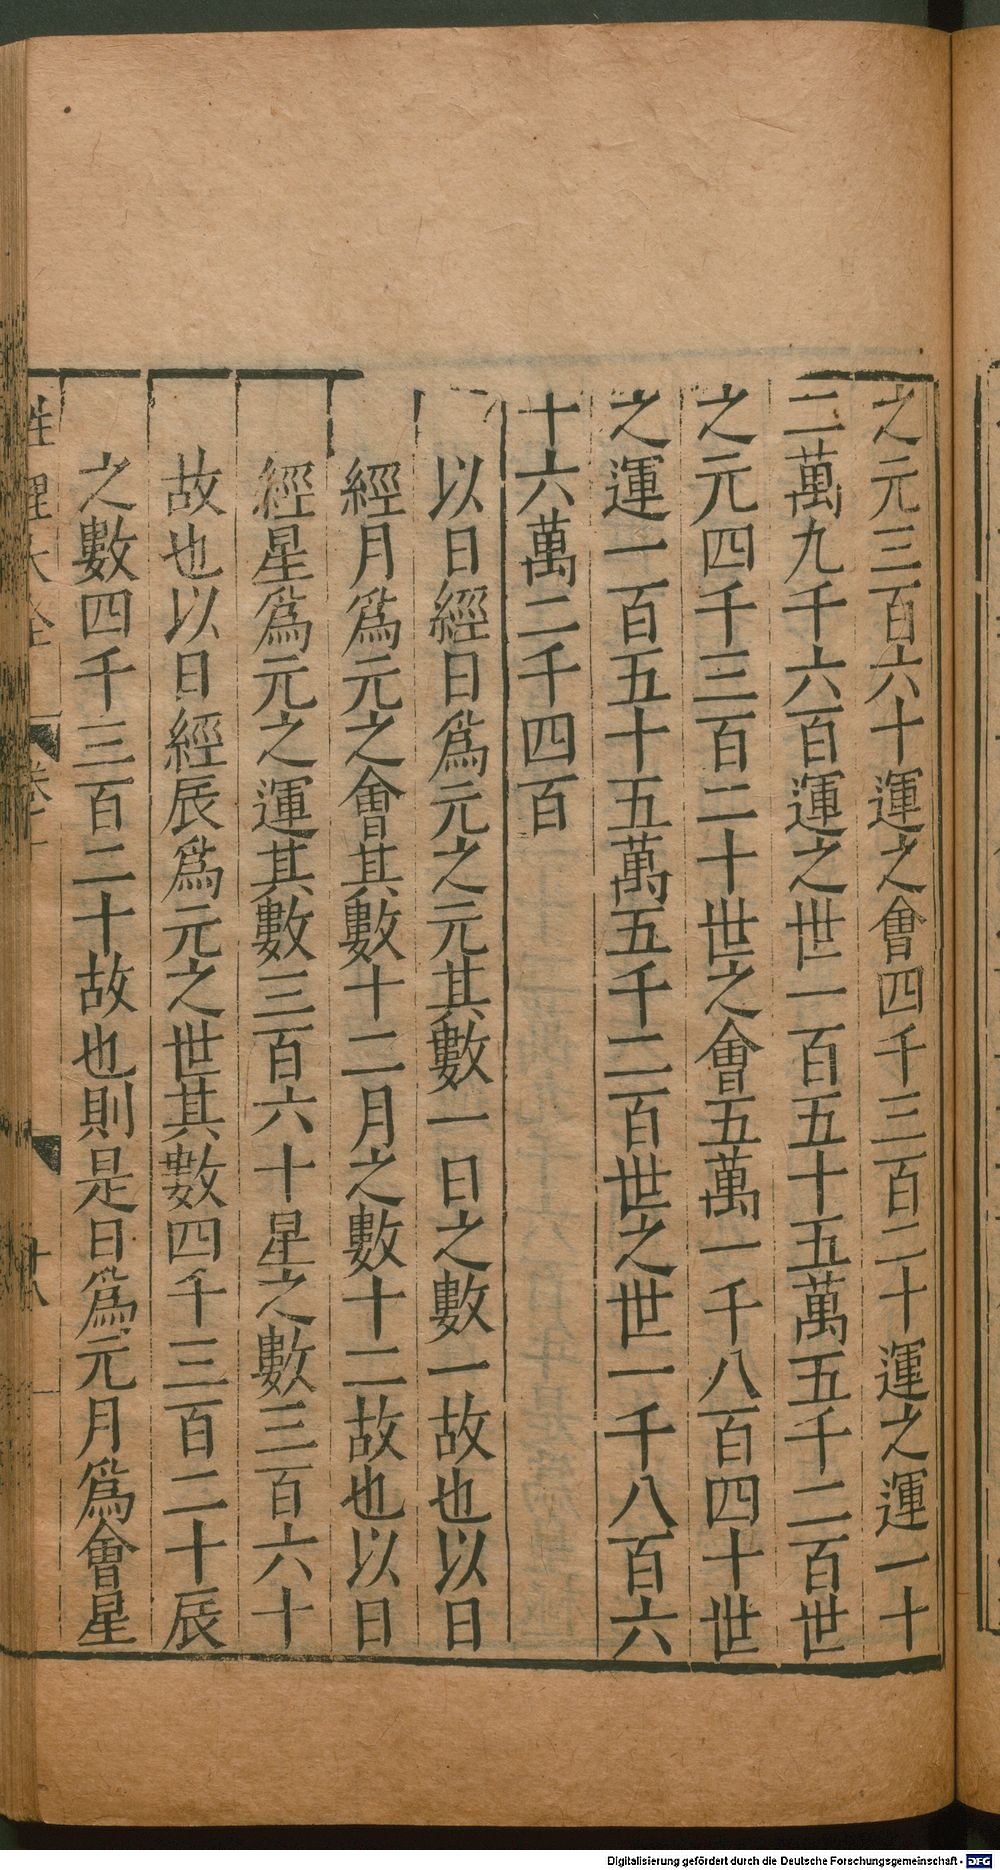 之元三百六十運之會四千三百二十運之運一十
二萬九千六百運之世一百五十五萬五千二百世
之元四千三百二十世之會五萬一千八百四十世
之運一百五十五萬五千二百世之世一千八百六
十六萬二千四百
以日經日爲元之元其數一日之數一故也以日
經月爲元之會其數十二月之數十二故也以日
經星爲元之運其數三百六十星之數三百六十
故也以日經辰爲元之世其數四千三百二十辰
之數四千三百二十故也則是日爲元月爲會星
性理大全
Digitalisierung gefördert durch die Deutsche Forschungsgemeinschaft - DFG